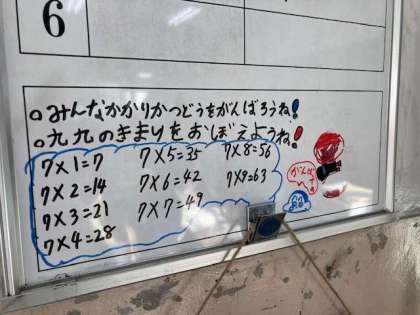 6
○みんなかかりかつどうをがんばろうね!
○九九のきまりをおぼえようね!
7×1=7
7×2=14
7×3=21
7×4=28
7×5=35
7×6=42
7×7=49
7×8=56
7×9=63